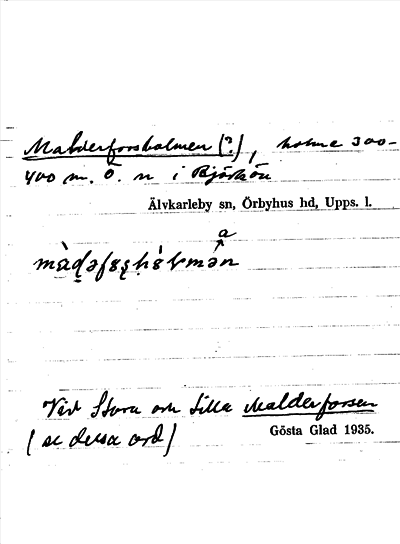 Malderforsholmen (?), holme 300-
400 m. Ö. n i Björkön
Älvkarleby sn, Örbyhus hd, Upps. l.
a
Vid Stora och Lilla Malderforsen
(se dessa ord)
Gösta Glad 1935.